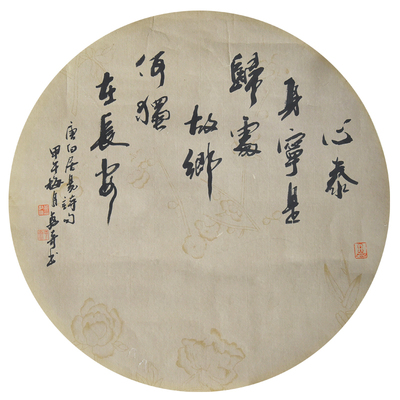 心泰
身寧是
歸處
故鄉
何獨
在長安
唐白居易詩句
甲午梅月